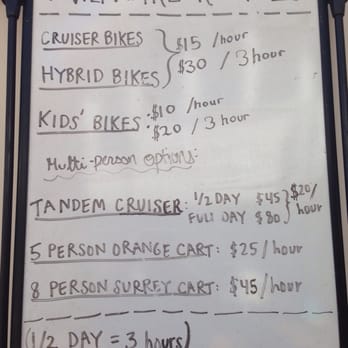 CRUISER BIKES } $15 /hour
HYBRID BIKES $30 / 3 hour
KIDS' BIKES: $10 /hour
$20 / 3 hour
Multi-person options:
TANDEM CRUISER: 1/2 DAY $45 } $20/
FULL DAY $80 hour
5 PERSON ORANGE CART: $25/hour
8 PERSON SURREY CART: $45/hour
(1/2 DAY = 3 hours)